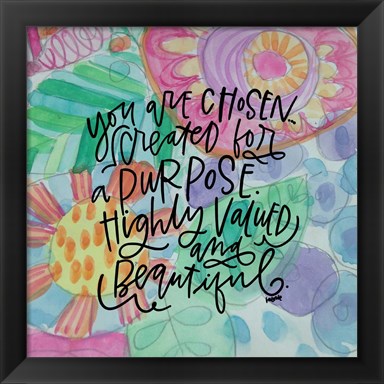 you are CHOSEN...
created for
a PURPOSE.
Highly VALUED
and
Beautiful.